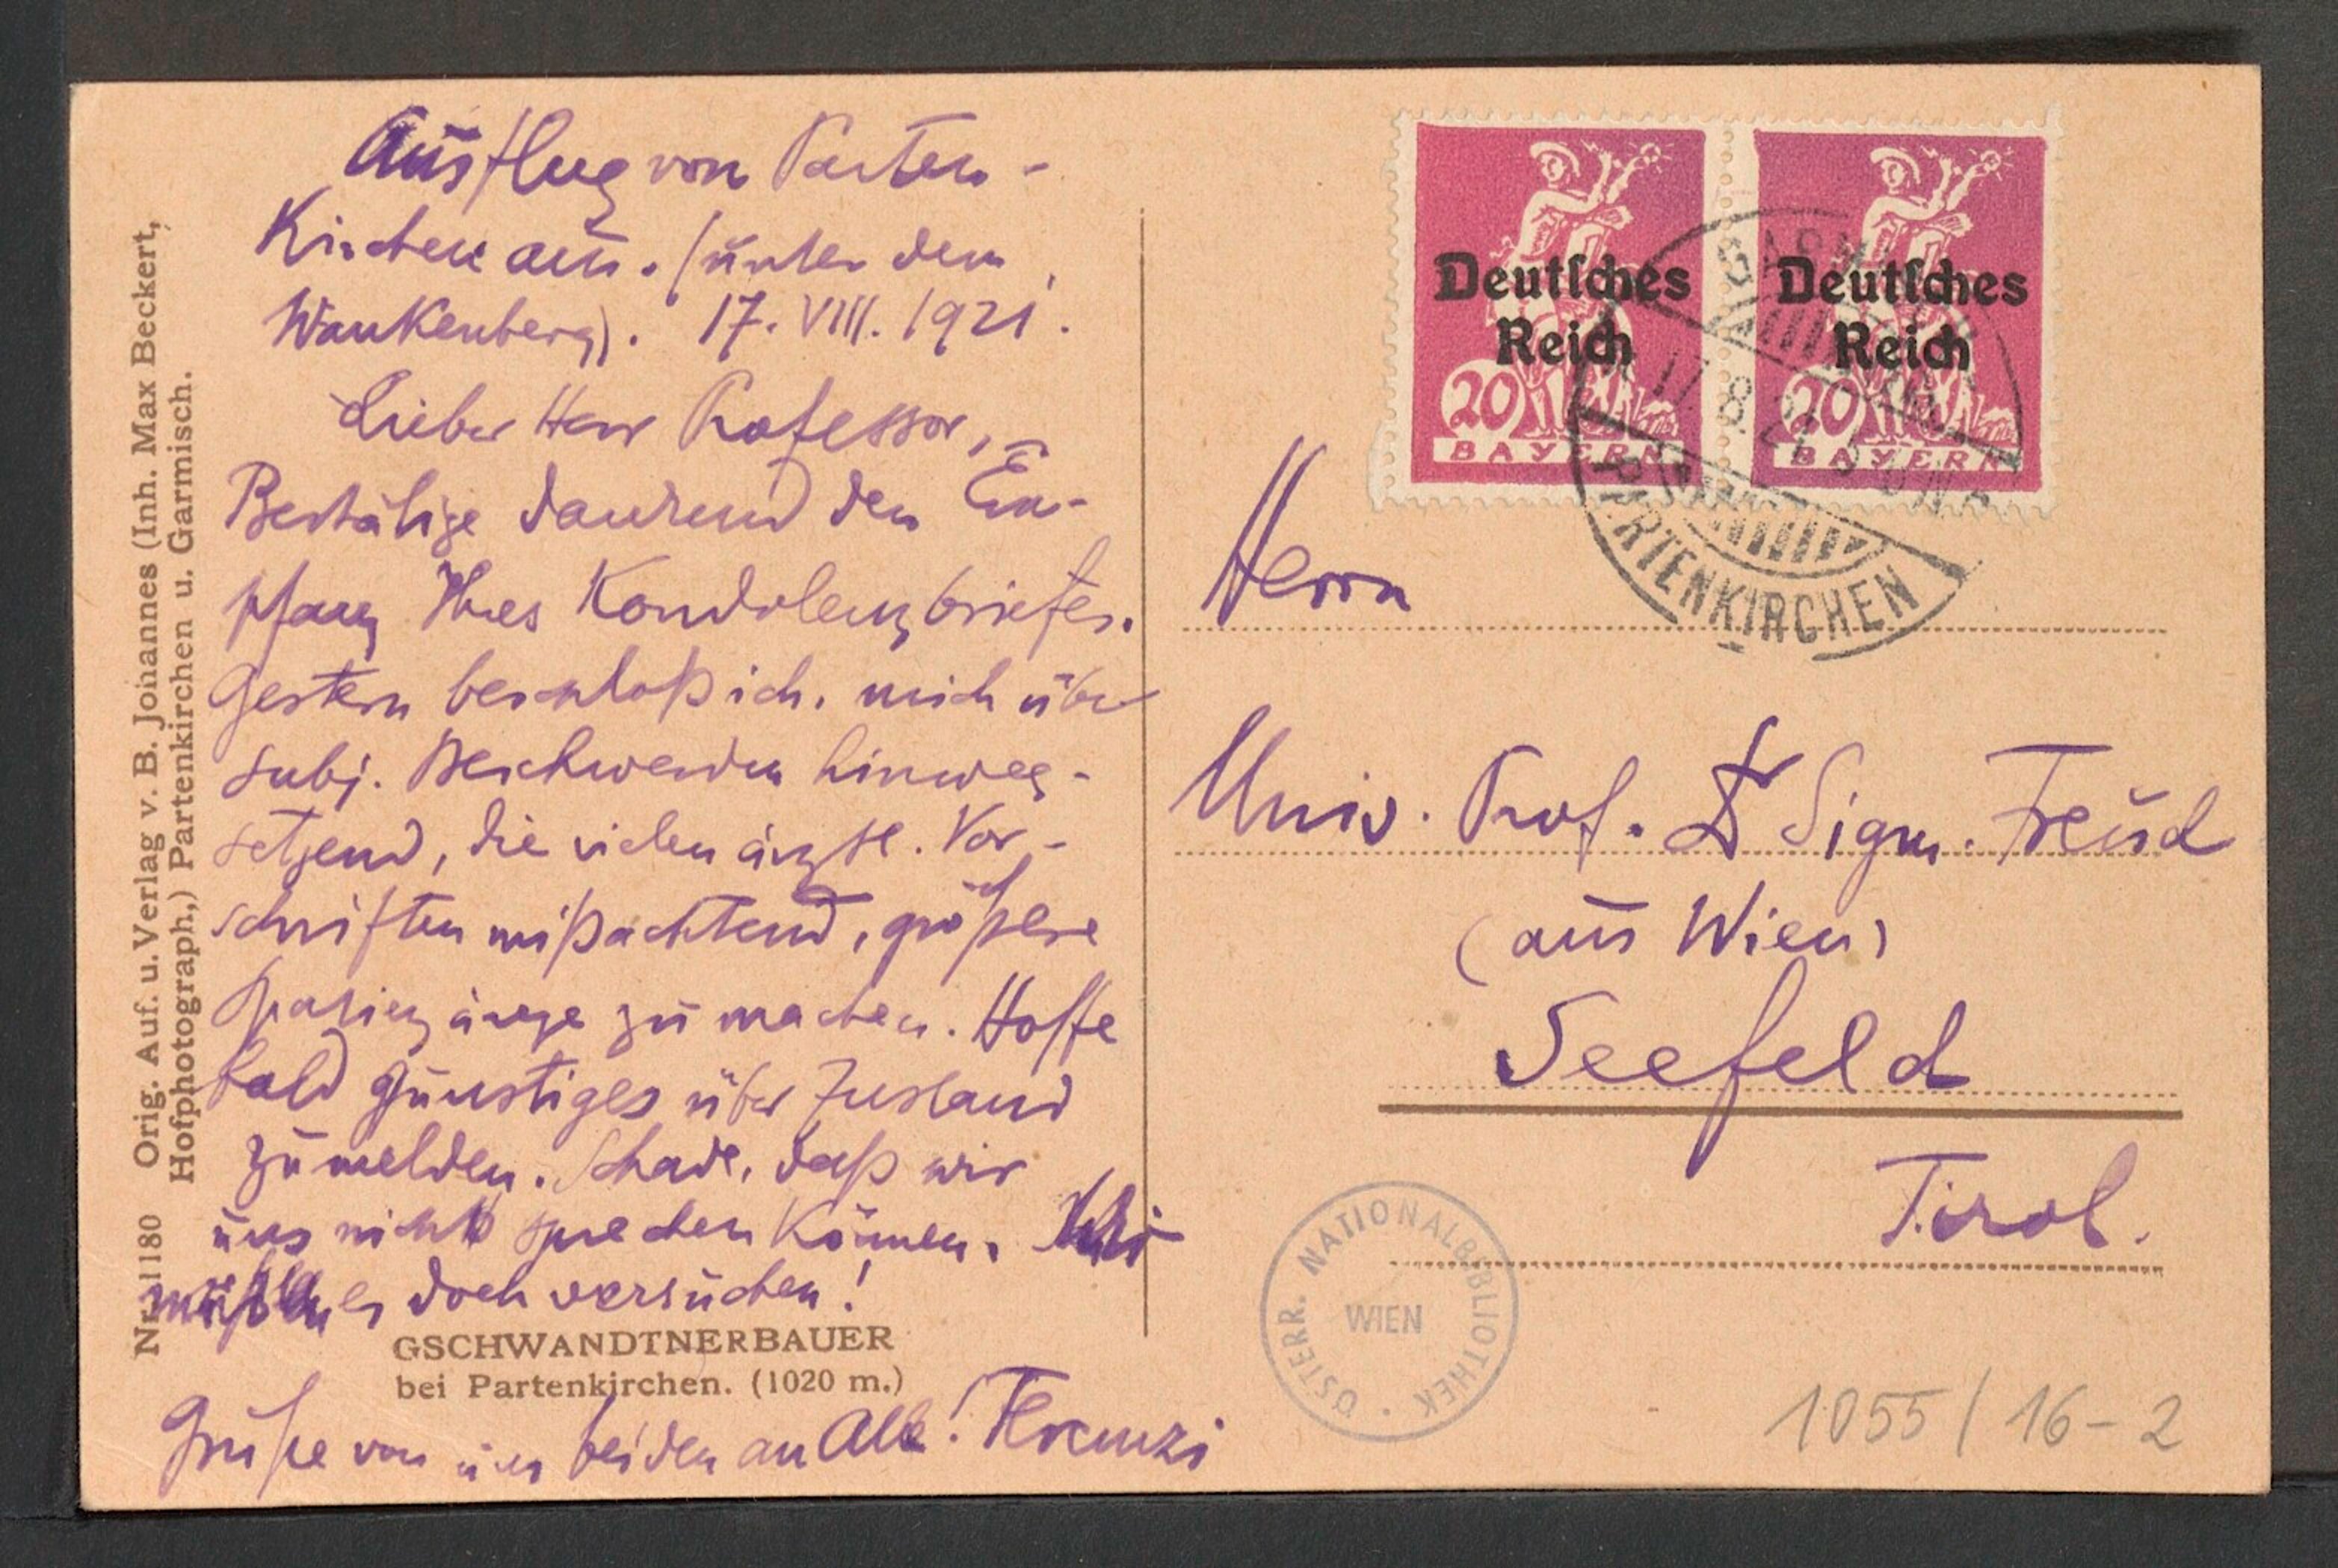 Ausflug von Parten-
Kirchen aus. (unter dem
Wankenberg). 17. VIII. 1921.
Lieber Herr Professor,
Bestätige dankend den Em-
pfang Ihres Kondolenzbriefes.
Gestern beschloß ich, mich über
subj. Beschwerden hinweg-
setzend, die vielen ärztl. Vor-
schriften mißachtend, größere
Spaziergänge zu machen. Hoffe
bald günstiges über Zustand
zu melden. Schade, daß wir
uns nicht sprechen Können. Wir
müßten es doch versuchen!
GSCHWANDTNERBAUER
bei Partenkirchen. (1020 m.)
Grüße von uns beiden an Alle! Ferenczi
Nr. 1180 Orig. Auf. u. Verlag v. B. Johannes (Inh. Max Beckert,
Hofphotograph,) Partenkirchen u. Garmisch.
Deutsches Reich
20
BAYERN
Deutsches Reich
20
BAYERN
17.8.21
PARTENKIRCHEN
Herrn
Univ. Prof. Dr Sigm. Freud
(aus Wien)
Seefeld
Tirol.
ÖSTERR. NATIONALBIBLIOTHEK
WIEN
1055/16-2